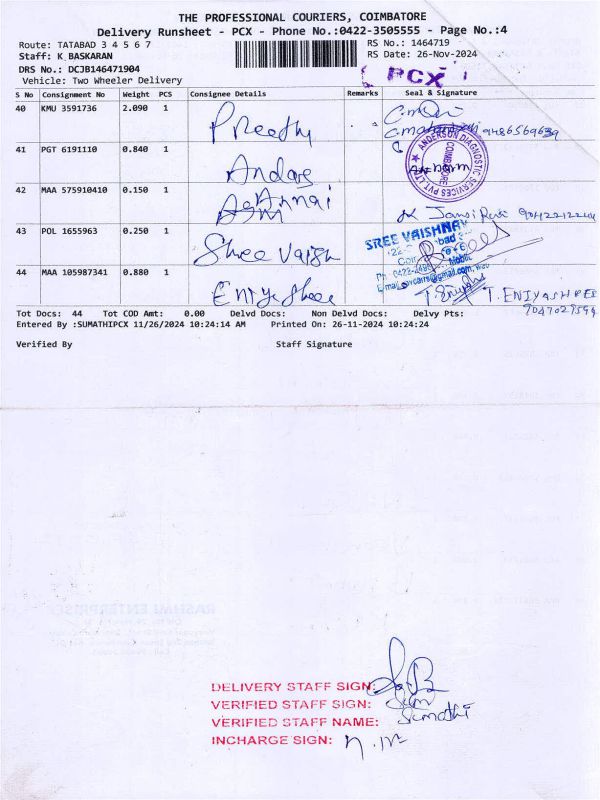 THE PROFESSIONAL COURIERS, COIMBATORE
Delivery Runsheet - PCX - Phone No.:0422-3505555 - Page No.:4
Route: TATABAD 3 4 5 6 7 RS No.: 1464719
Staff: K BASKARAN RS Date: 26-Nov-2024
DRS No.: DCJB146471904
Vehicle: Two Wheeler Delivery PCX
S No Consignment No Weight PCS Consignee Details Remarks Seal & Signature
40 KMU 3591736 2.090 1 Preethy
9486569639
41 PGT 6191110 0.840 1 ANDERSON DIAGNOSTIC SERVICES PVT LTD COIMBATORE
42 MAA 575910410 0.150 1 Annai
43 POL 1655963 0.250 1 Shree Vaish SREE VAISHNAV
44 MAA 105987341 0.880 1
T. ENIYASHREE
9047029594
Tot Docs: 44 Tot COD Amt: 0.00 Delvd Docs: Non Delvd Docs: Delvy Pts:
Entered By :SUMATHIPCX 11/26/2024 10:24:14 AM Printed On: 26-11-2024 10:24:24
Verified By Staff Signature
RASHMI ENTERPRISE
DELIVERY STAFF SIGN:
VERIFIED STAFF SIGN:
VERIFIED STAFF NAME: Sumathi
INCHARGE SIGN: